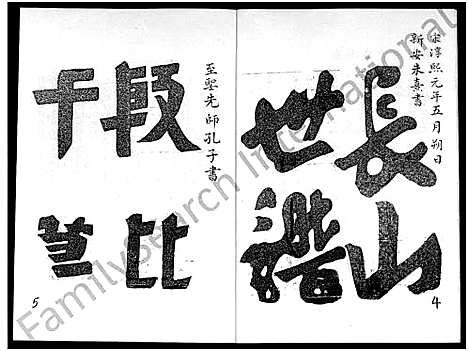 宋淳熙元年五月朔日
新安朱熹書
長山
世譜
4
至聖先師孔子書
殷比
干
5
FamilySearch International